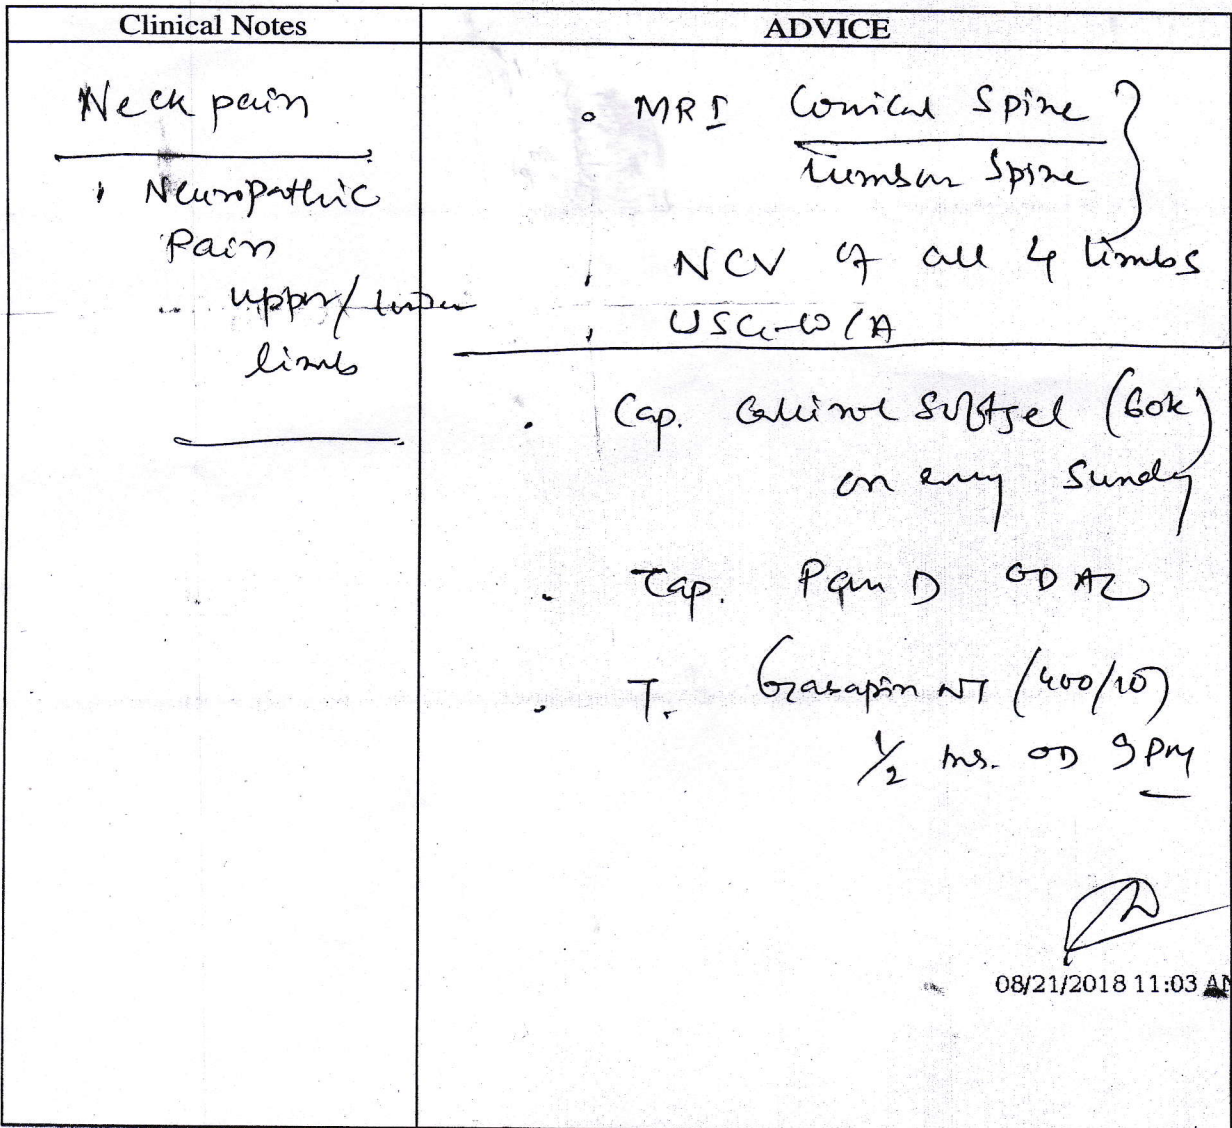 Clinical Notes
ADVICE
Neck pain
Neuropathic
Pain
upper/lower
limb
MRI Cervical Spine
Lumbar Spine
NCV of all 4 limbs
USG-W/A
Cap. Softgel (60k)
on every Sunday
Cap. Pan D OD AC
T. Gabapin NT (400/10)
1/2 OD 9 PM
08/21/2018 11:03 AM